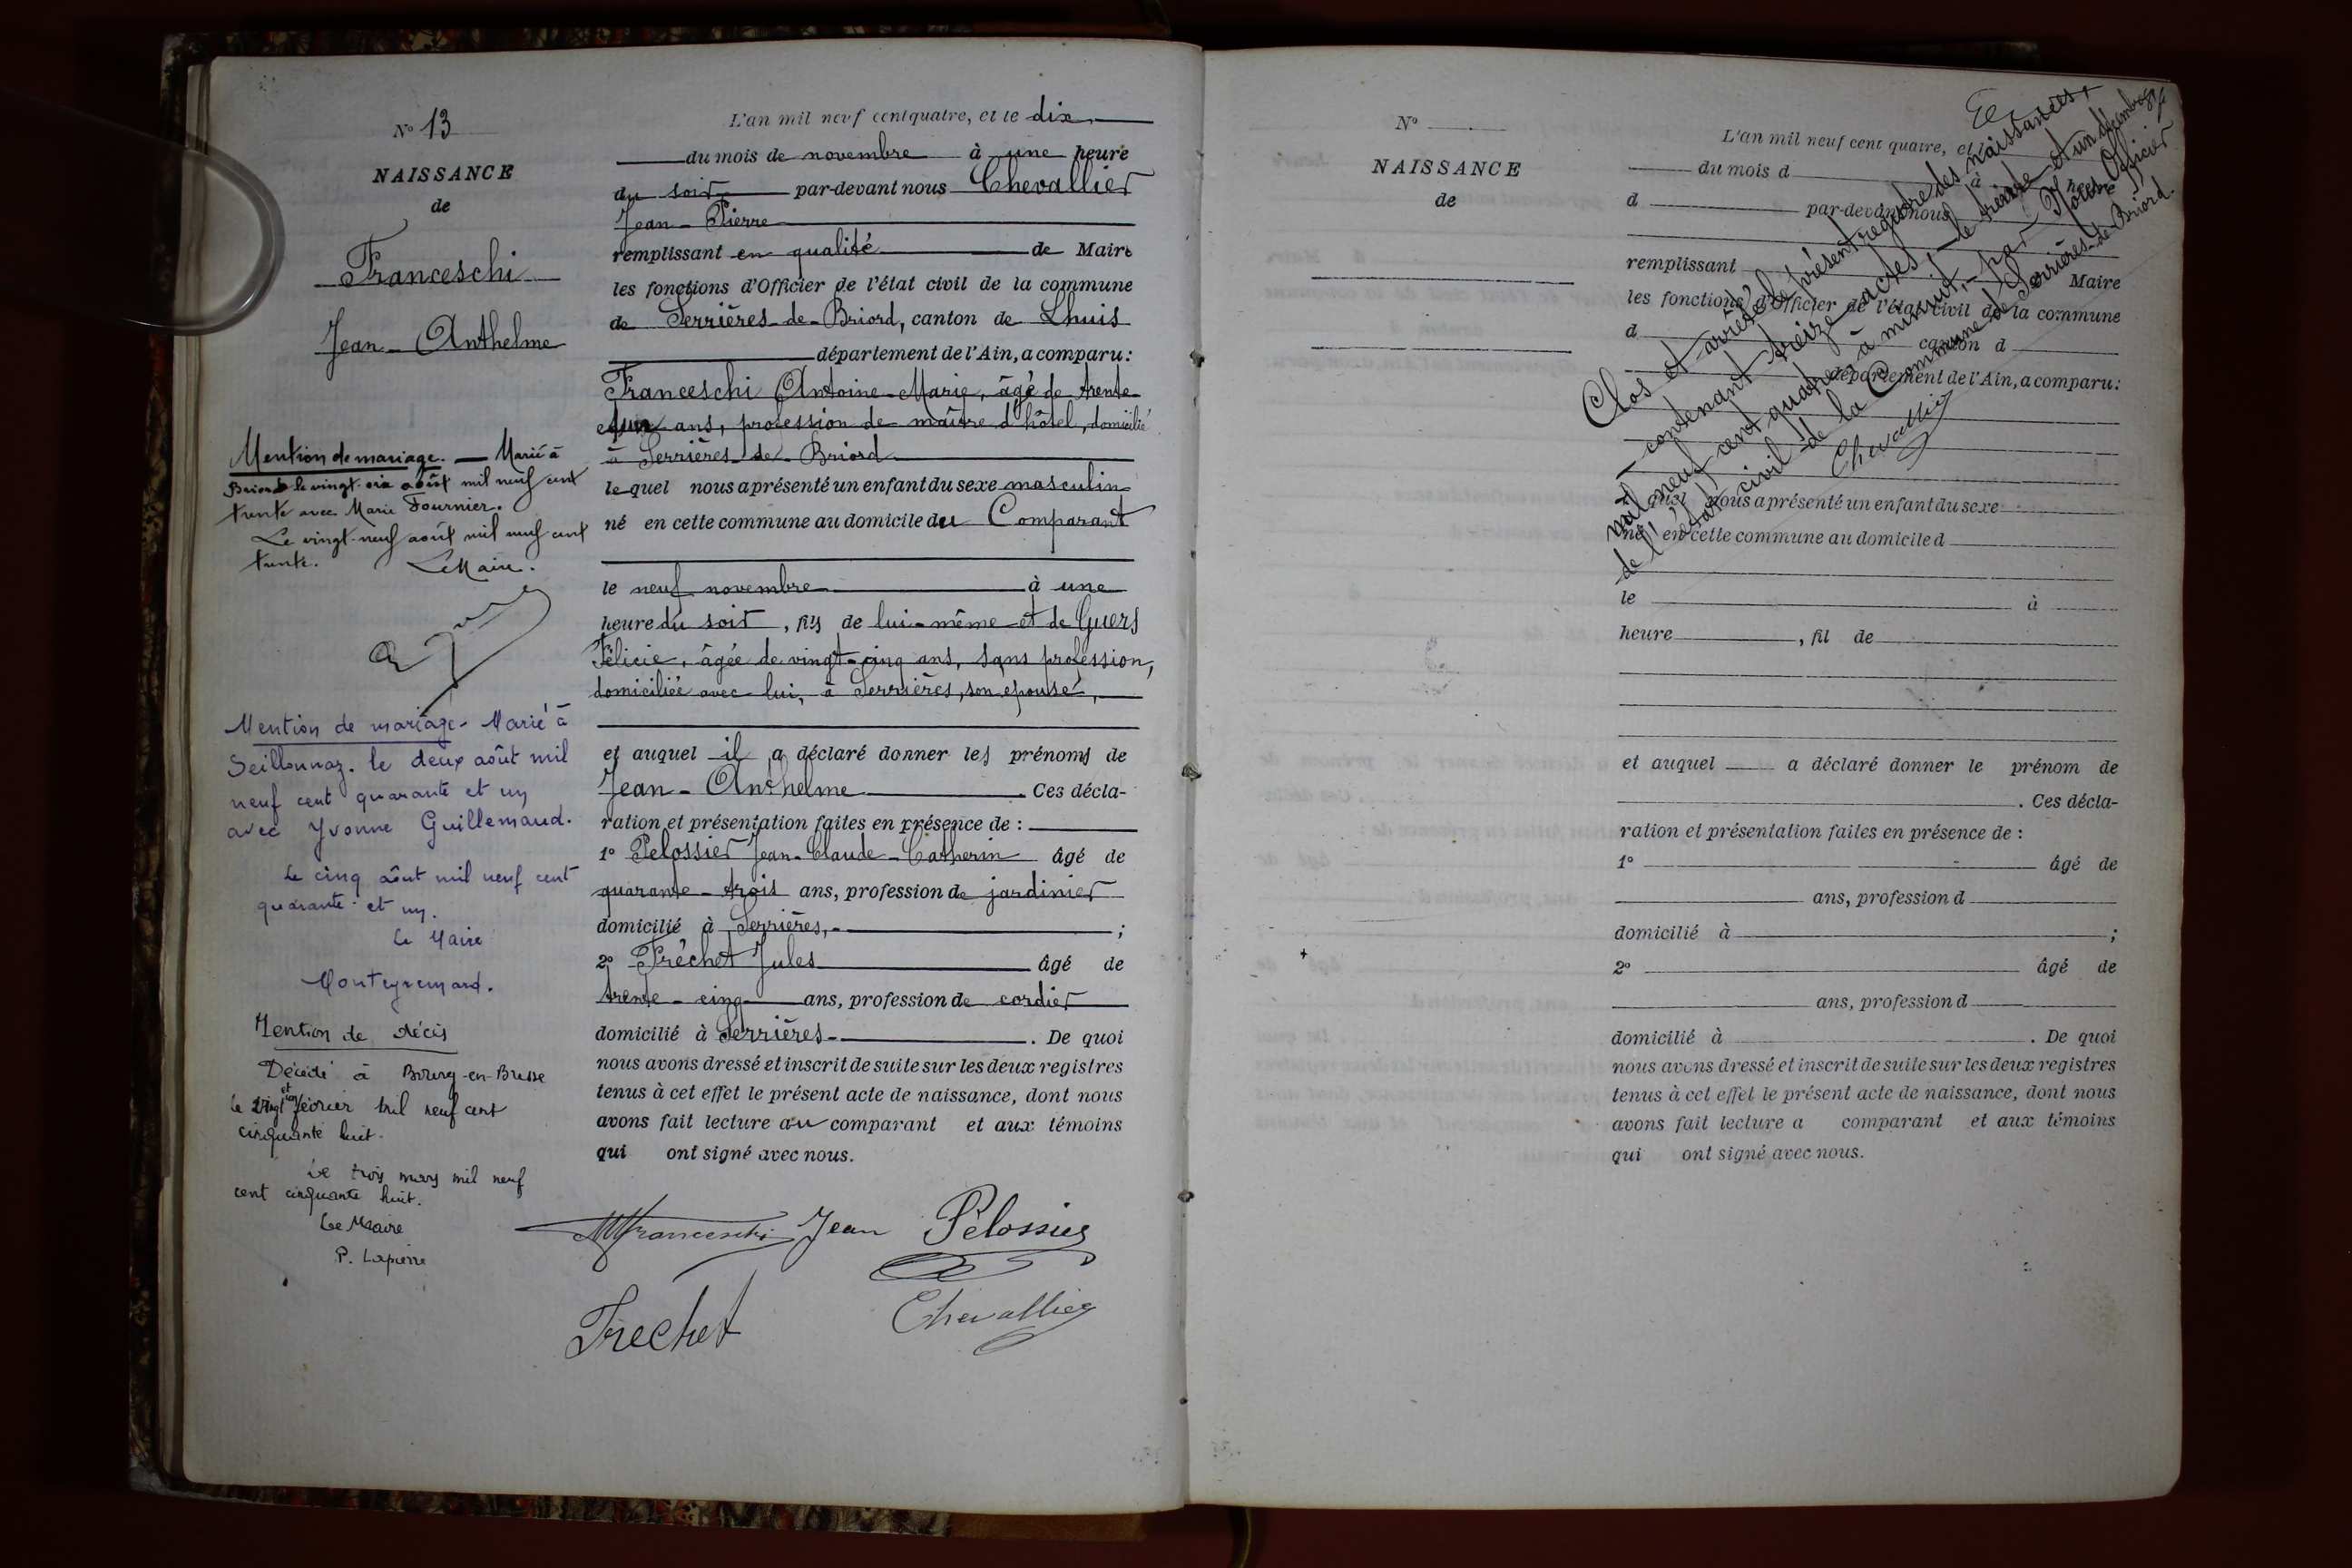 N° 13
NAISSANCE
de
Franceschi
Jean-Anthelme
Mention de mariage. — Marié à
Briord le vingt-six août mil neuf cent
trente avec Marie Fournier.
Le vingt-neuf août mil neuf cent
trente. Le Maire.
Mention de mariage - Marié à
Seillonnaz. le deux août mil
neuf cent quarante et un
avec Yvonne Guillemaud.
Le cinq août mil neuf cent
quarante et un.
Le Maire
Monteyremard.
Mention de décès
Décédé à Bourg-en-Bresse
le vingt et un février mil neuf cent
cinquante huit.
Le trois mars mil neuf
cent cinquante huit.
Le Maire
P. Lapierre
L'an mil neuf cent quatre, et le dix
du mois de novembre à une heure
du soir par-devant nous Chevallier
Jean-Pierre
remplissant en qualité de Maire
les fonctions d'Officier de l'état civil de la commune
de Serrières-de-Briord, canton de Lhuis
département de l'Ain, a comparu:
Franceschi Antoine-Marie, âgé de trente-
et un ans, profession de maître d'hôtel, domicilié
à Serrières-de-Briord
lequel nous a présenté un enfant du sexe masculin
né en cette commune au domicile du Comparant
le neuf novembre à une
heure du soir, fils de lui-même et de Guers
Félicie, âgée de vingt-cinq ans, sans profession,
domiciliée avec lui, à Serrières, son épouse,
et auquel il a déclaré donner les prénoms de
Jean-Anthelme. Ces décla-
ration et présentation faites en présence de :
1° Pelossier Jean-Claude-Catherin âgé de
quarante-trois ans, profession de jardinier
domicilié à Serrières, - ;
2° Fréchet Jules âgé de
trente-cinq ans, profession de cordier
domicilié à Serrières - . De quoi
nous avons dressé et inscrit de suite sur les deux registres
tenus à cet effet le présent acte de naissance, dont nous
avons fait lecture au comparant et aux témoins
qui ont signé avec nous.
Franceschi Jean Pélossier
Frechet Chevallier
N°
NAISSANCE
de
L'an mil neuf cent quatre, et le
du mois d à heure
d par-devant nous
remplissant Maire
les fonctions d'Officier de l'état civil de la commune
d canton d
département de l'Ain, a comparu:
Clos et arrêté le présent registre des naissances,
contenant treize actes, le trente et un décembre
mil neuf cent quatre, à minuit, par Nous Officier
de l'état civil de la Commune de Serrières-de-Briord.
Chevallier
quel nous a présenté un enfant du sexe
né en cette commune au domicile d
le à
heure , fil de
et auquel a déclaré donner le prénom de
. Ces décla-
ration et présentation faites en présence de :
1° âgé de
ans, profession d
domicilié à ;
2° âgé de
ans, profession d
domicilié à . De quoi
nous avons dressé et inscrit de suite sur les deux registres
tenus à cet effet le présent acte de naissance, dont nous
avons fait lecture a comparant et aux témoins
qui ont signé avec nous.